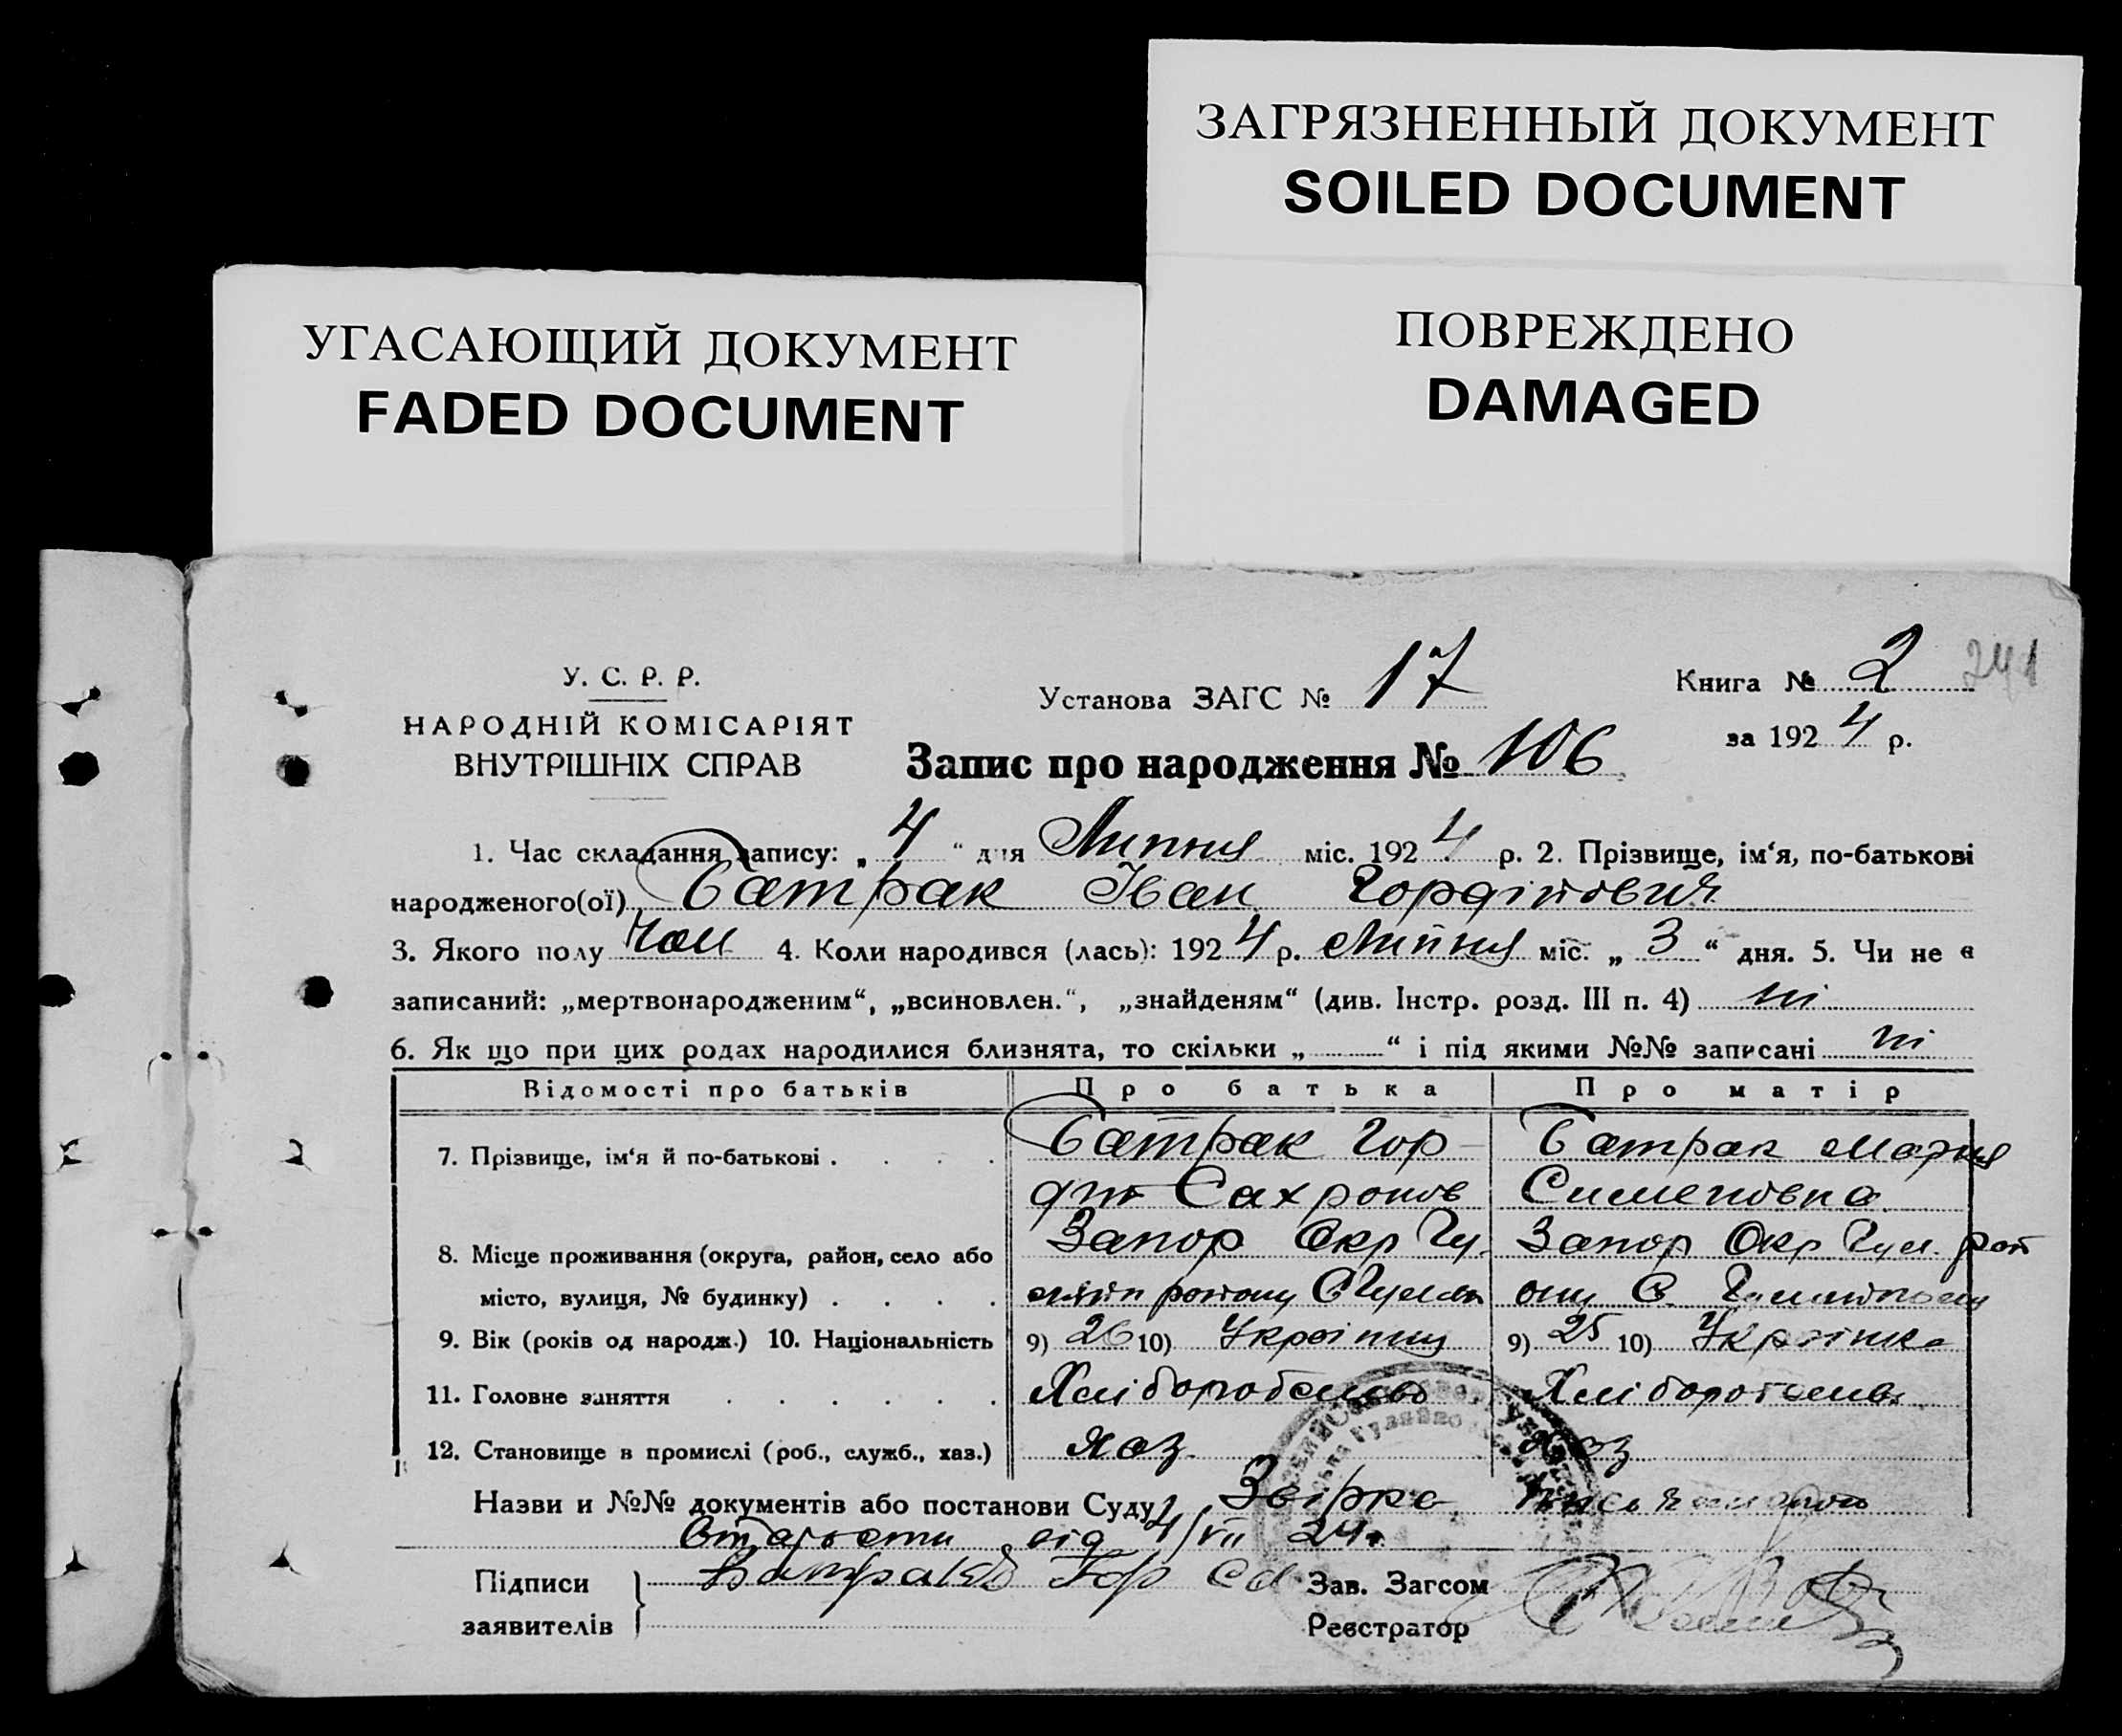 ЗАГРЯЗНЕННЫЙ ДОКУМЕНТ
SOILED DOCUMENT
УГАСАЮЩИЙ ДОКУМЕНТ
FADED DOCUMENT
ПОВРЕЖДЕНО
DAMAGED
241
У. С. Р. Р.
НАРОДНІЙ КОМІСАРІЯТ
ВНУТРІШНІХ СПРАВ
Установа ЗАГС № 17
Книга № 2
за 1924 р.
Запис про народження № 106
1. Час складання запису: „4“ дня Липня міс. 1924 р. 2. Прізвище, ім‘я, по-батькові
народженого(ої) Батрак Іван Гордійович
3. Якого полу Чол 4. Коли народився (лась): 1924 р. Липня міс. „3“ дня. 5. Чи не є
записаний: „мертвонародженим“, „всиновлен.“, „знайденям“ (див. Інстр. розд. III п. 4) ні
6. Як що при цих родах народилися близнята, то скільки „ “ і під якими №№ записані ні
Відомості про батьків Про батька Про матір
7. Прізвище, ім‘я й по-батькові . Батрак Гор Батрак Мария
Сименовна
8. Місце проживання (округа, район, село або Запор Окр Гу- Запор Окр Гул. рай
місто, вулиця, № будинку) ону С.
9. Вік (років од народж.) 10. Національність 9) 26 10) Українець 9) 25 10) Українка
11. Головне заняття Хліборобство Хліборобство
12. Становище в промислі (роб., служб., хаз.) Хаз. Хаз
Назви и №№ документів або постанови Суду
від 4/VII 24 г
Підписи
заявителів
Батрак Гор
Зав. Загсом
Реєстратор